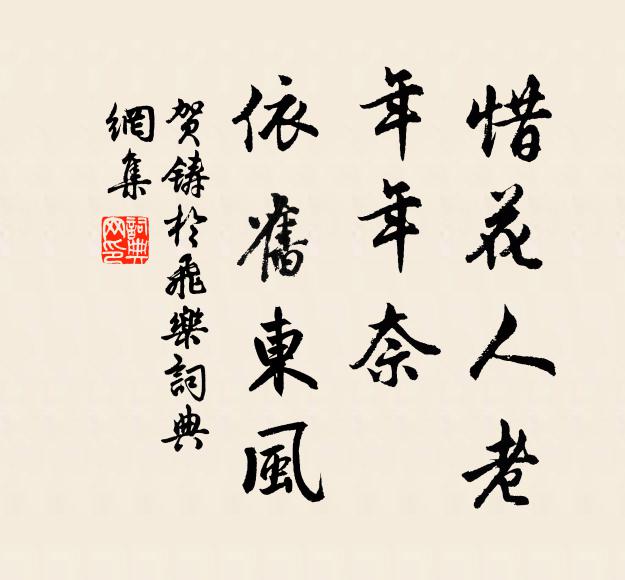 惜花人老
年年奈
依舊東風
賀鑄於飛樂詞典
網集
詞典
網印